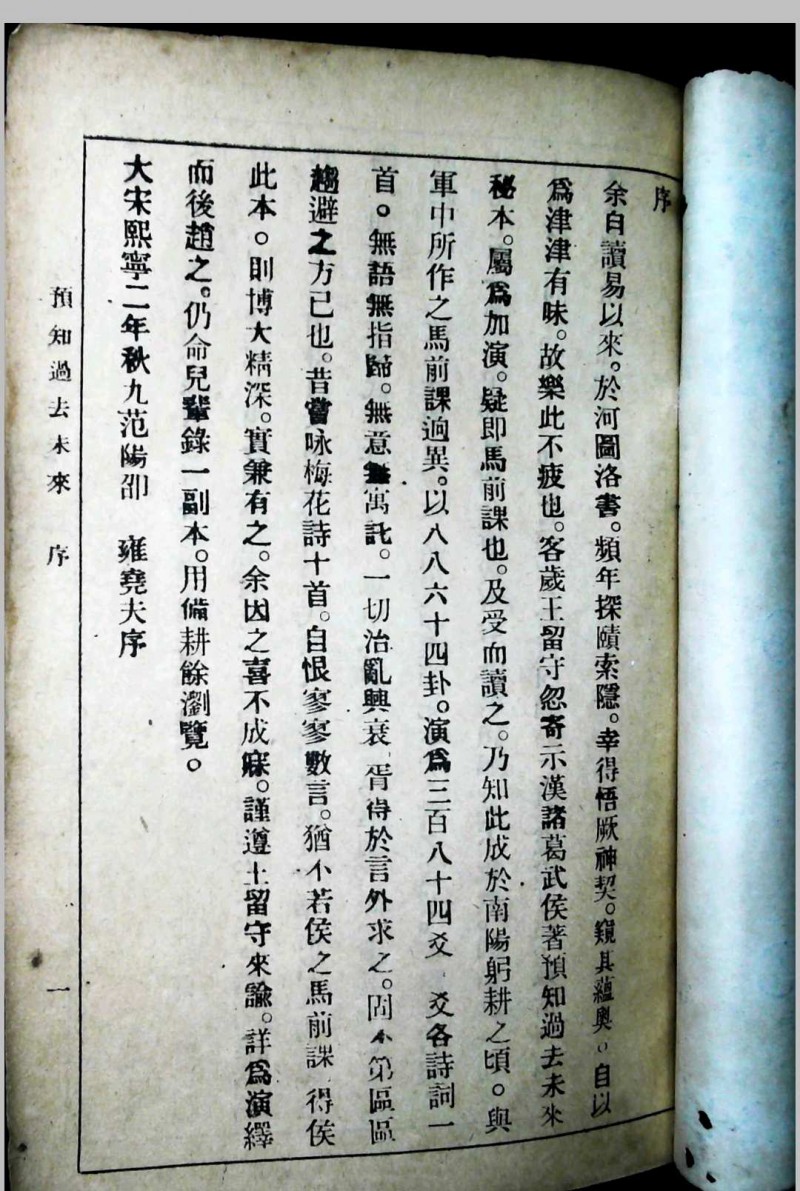 序
余自讀易以來。於河圖洛書。頻年探賾索隱。幸得悟厥神契。窺其蘊奧。自以
爲津津有味。故樂此不疲也。客歲王留守忽寄示漢諸葛武侯著預知過去未來
秘本。屬爲加演。疑即馬前課也。及受而讀之。乃知此成於南陽躬耕之頃。與
軍中所作之馬前課逈異。以八八六十四卦。演爲三百八十四爻 爻各詩詞一
首。無語無指歸。無意無寓託。一切治亂興衰 胥待於言外求之。固不第區區
趨避之方已也。昔嘗咏梅花詩十首。自恨寥寥數言。猶不若侯之馬前課 得侯
此本。則博大精深。實兼有之。余因之喜不成寐。謹遵王留守來諭。詳爲演繹
而後趙之。仍命兒輩錄一副本。用備耕餘瀏覽。
大宋熙寧二年秋九范陽邵 雍堯夫序
預知過去未來 序
一